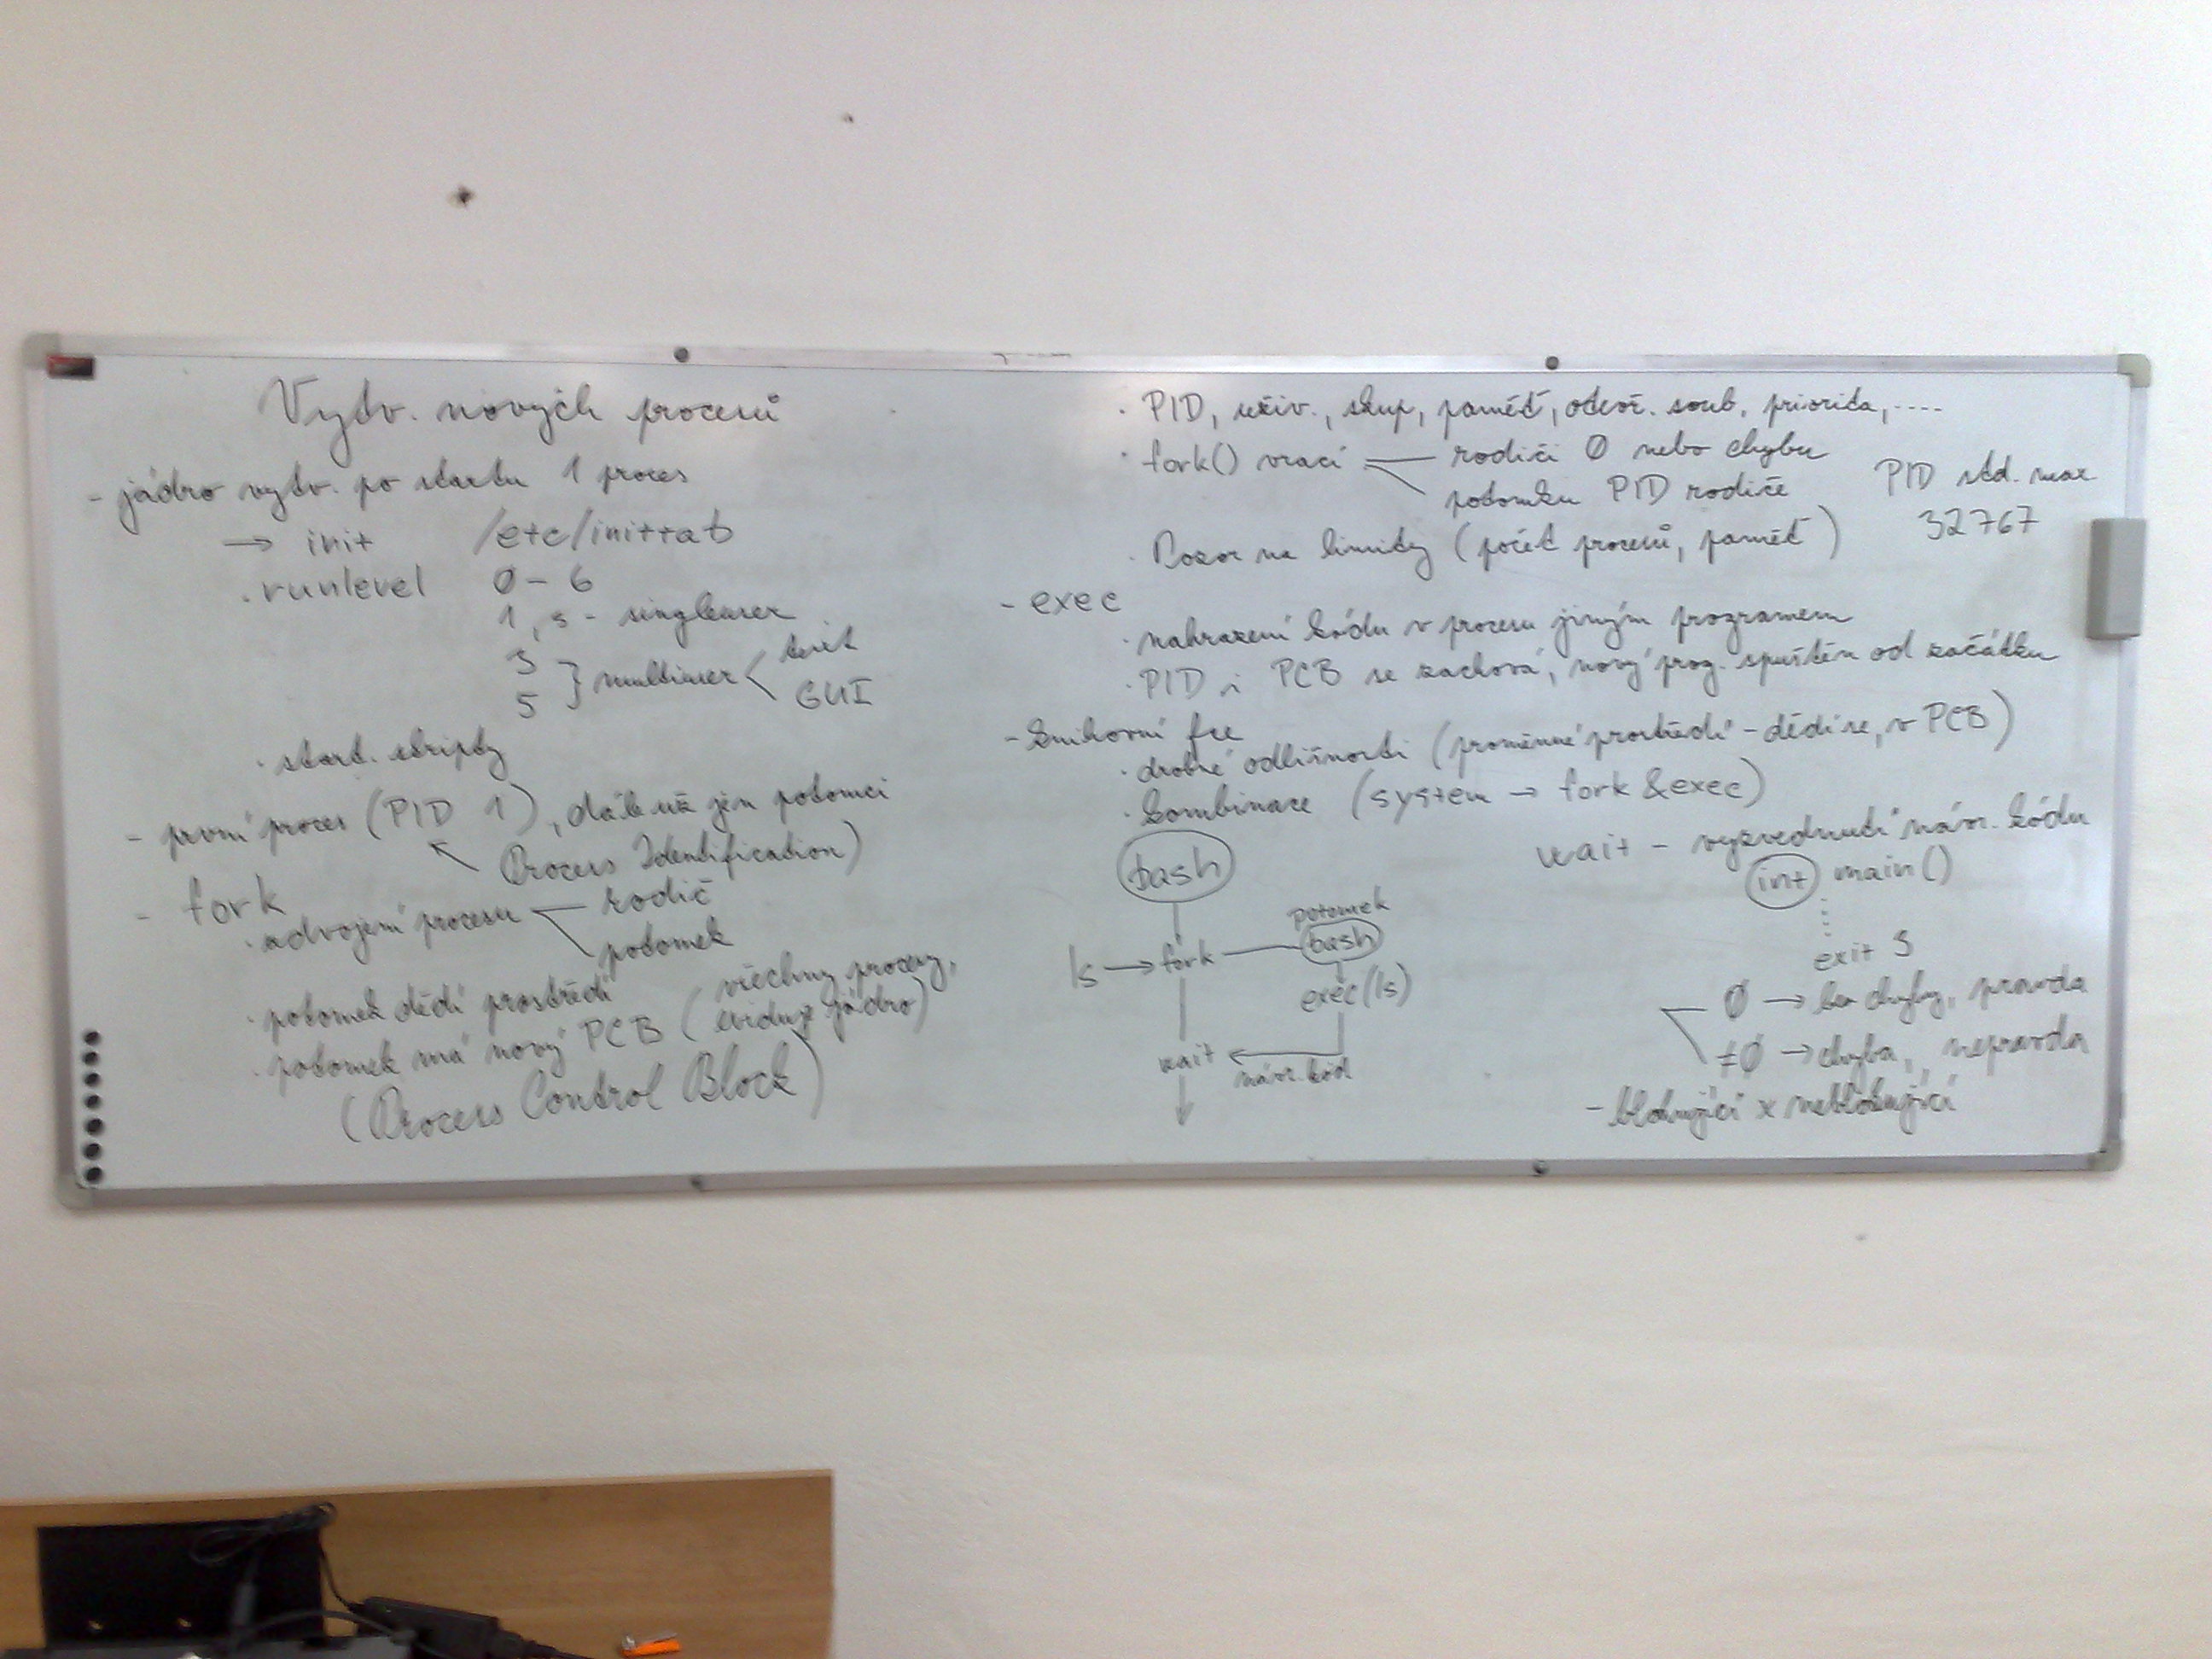 Vytv. nových procesů
- jádro vytv. po startu 1 proces
→ init /etc/inittab
· runlevel 0 - 6
1, s - singleuser
3
5 } multiuser < text
GUI
· start. skripty
- první proces (PID 1), dále už jen potomci
Process Identification)
- fork
· zdvojení procesu
rodič
potomek
· potomek dědí prostředí
· potomek má nový PCB (všechny procesy,
eviduje jádro)
(Process Control Block)
· PID, uživ., skup, paměť, otevř. soub, priorita, ....
· fork() vrací
rodiči 0 nebo chybu
potomku PID rodiče
PID std. max
32767
· Pozor na limity (počet procesů, paměť)
- exec
· nahrazení kódu v procesu jiným programem
· PID i PCB se zachová, nový prog. spuštěn od začátku
- knihovní fce
· drobné odlišnosti (proměnné prostředí - dědí se, v PCB)
· kombinace (system → fork & exec)
bash
ls → fork
potomek
bash
exec(ls)
wait ←
návr. kód
wait - vyzvednutí návr. kódu
int main()
⋮
exit 3
0 → bez chyby, pravda
≠0 → chyba, nepravda
- blokující x neblokující